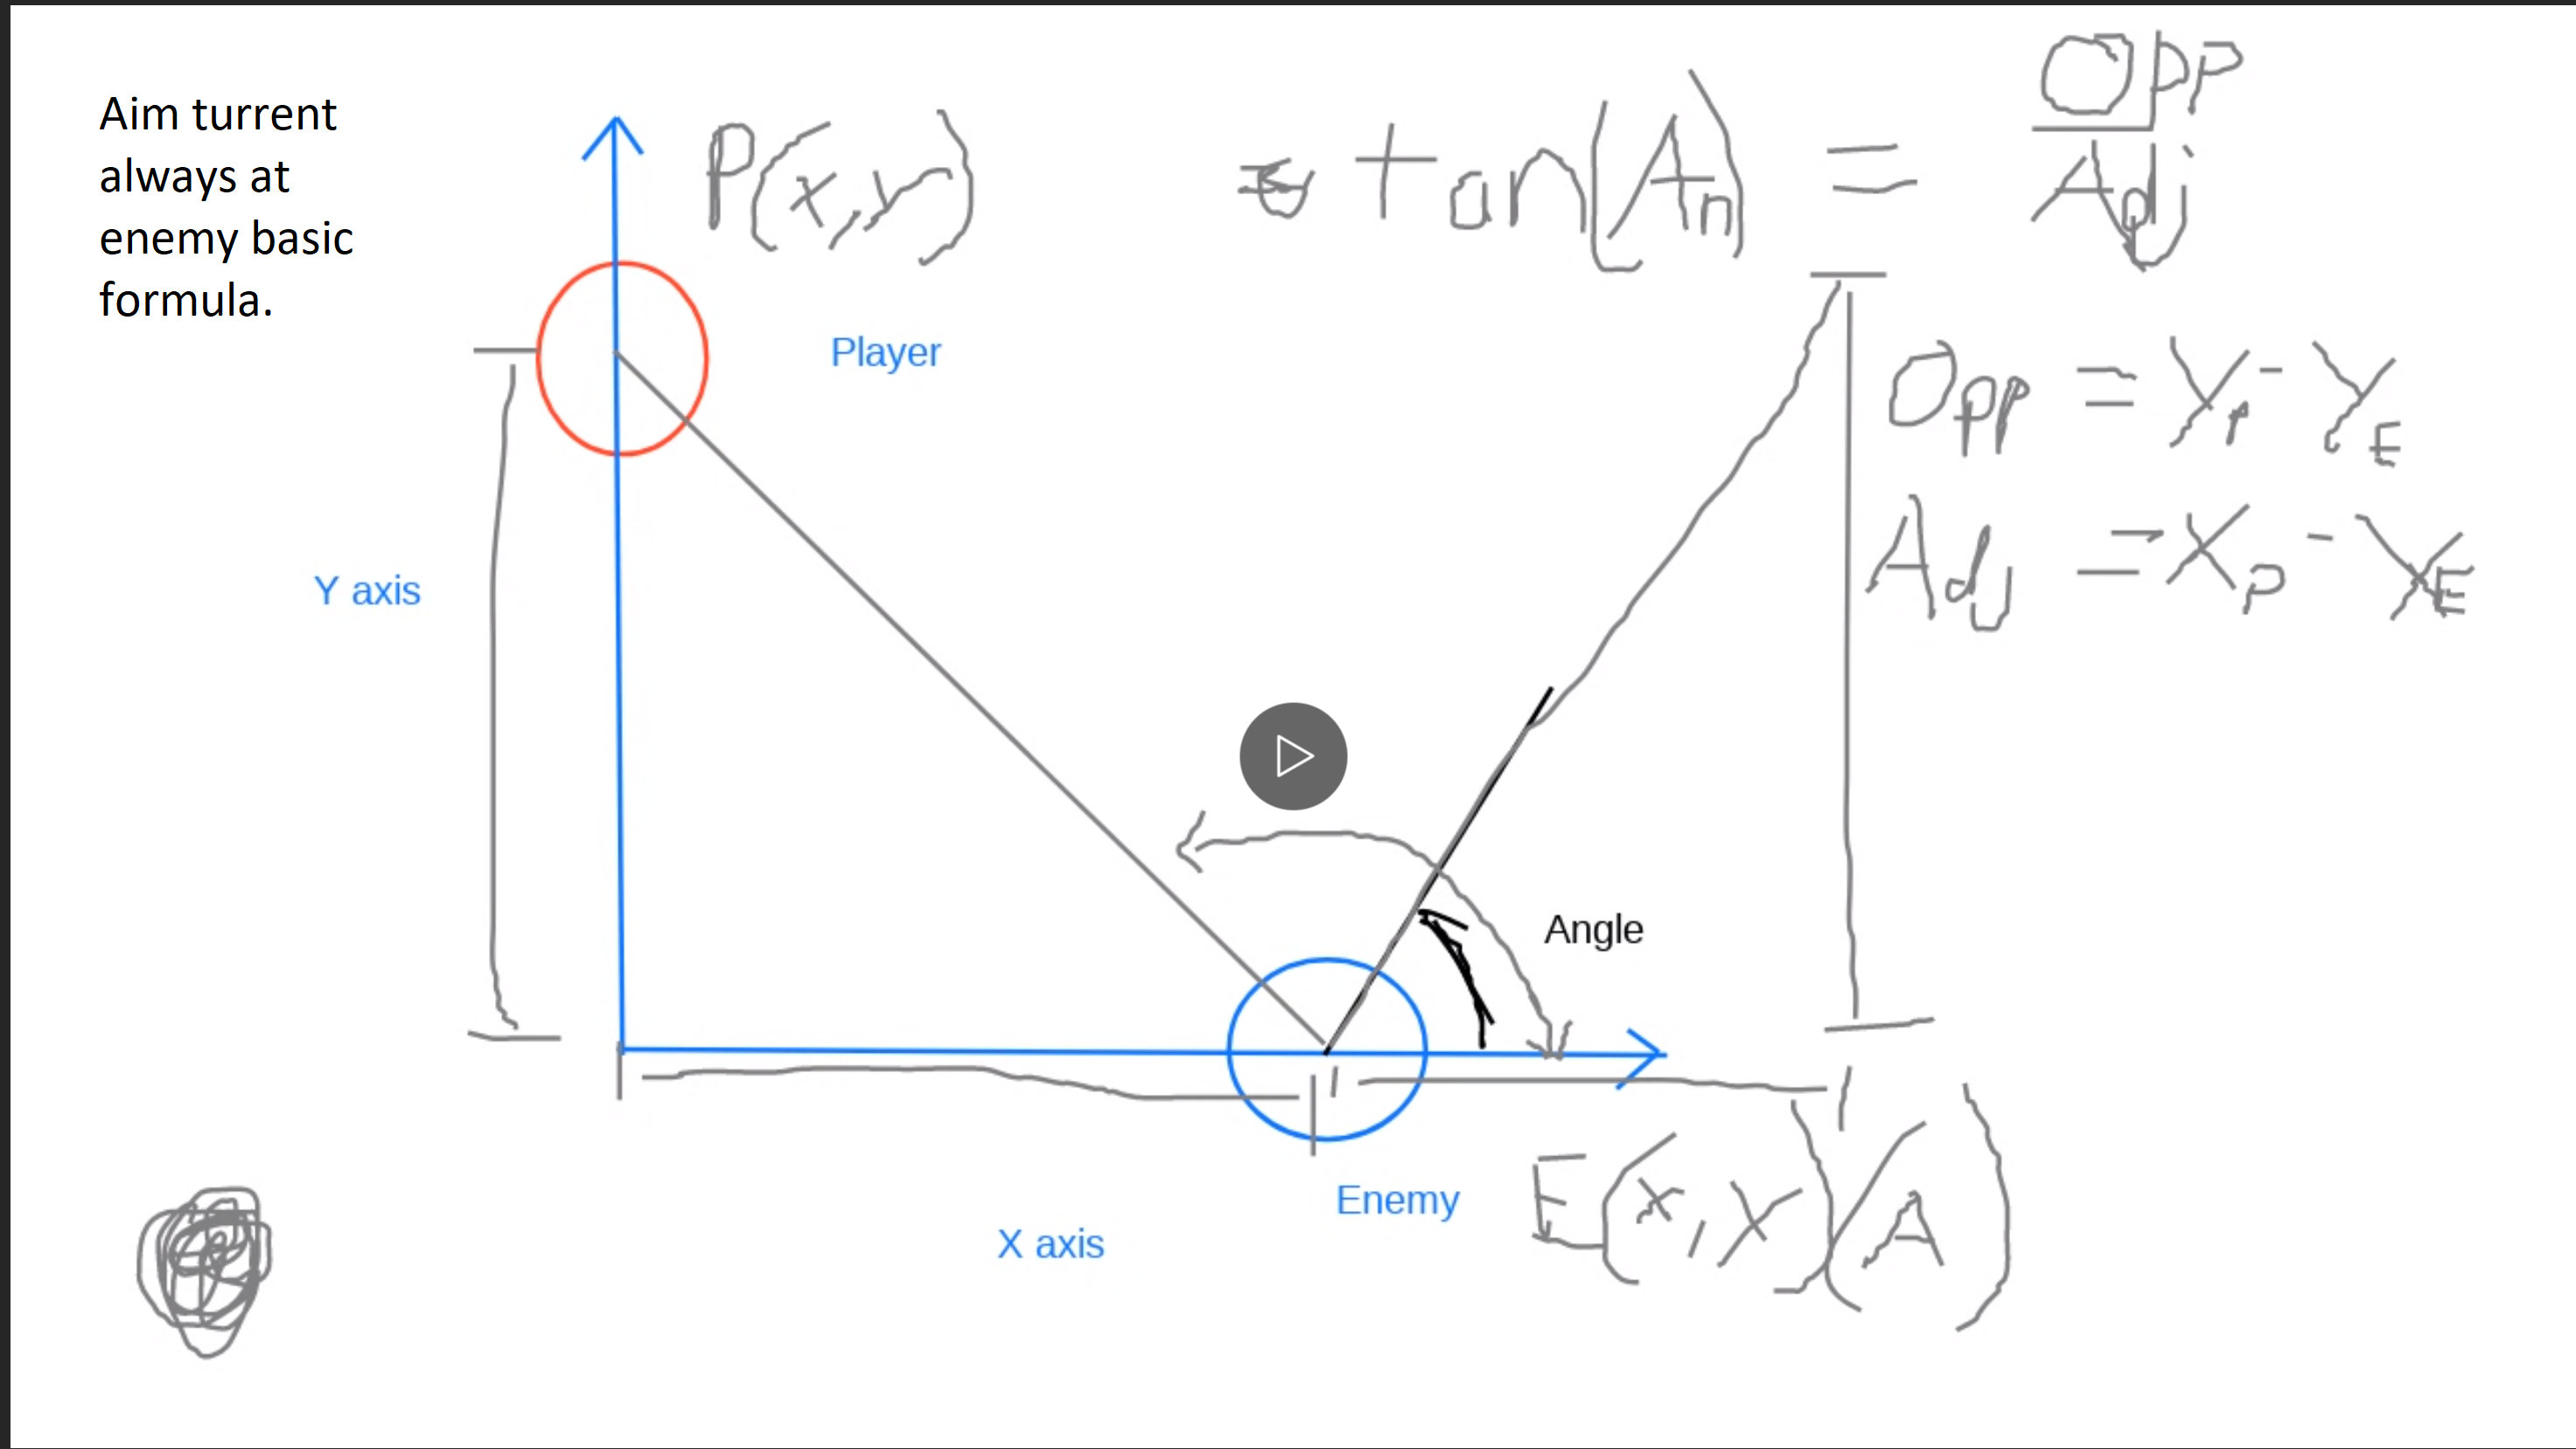 Aim turrent
always at
enemy basic
formula.
P(x,y)
tan(An) = Opp
Adj
Player
Opp = Yp - YE
Adj = Xp - XE
Y axis
Angle
Enemy
E(x,y)(A)
X axis